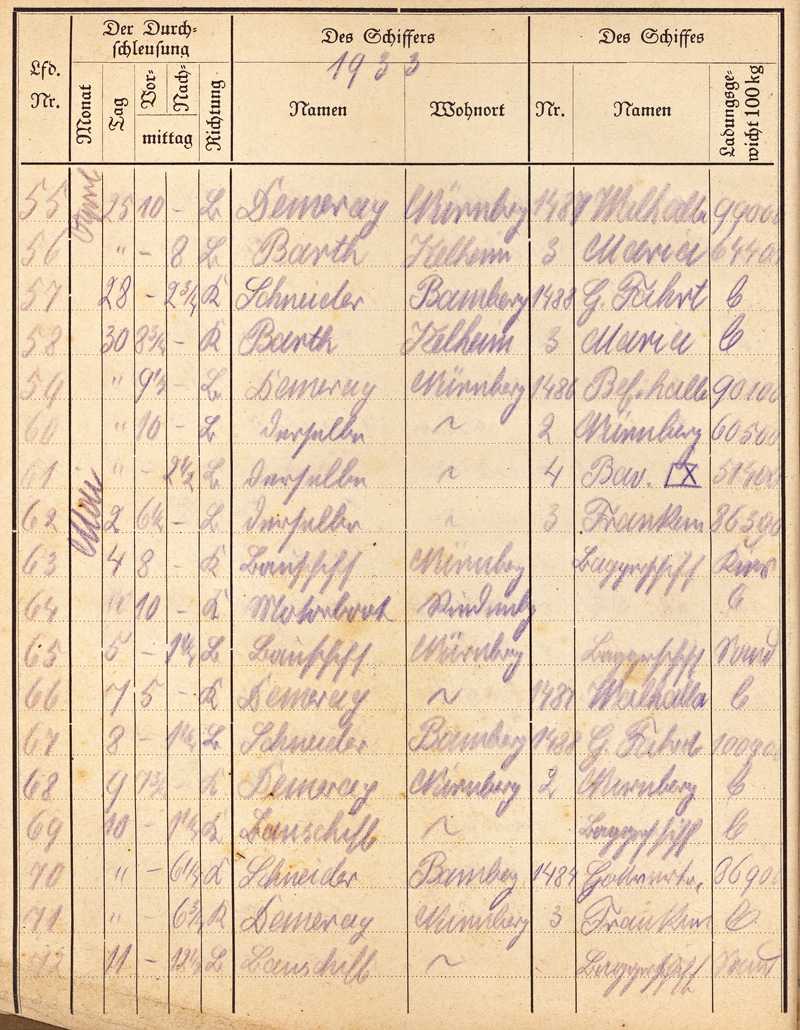 Lfd. Nr.
Der Durch-
schleusung
Monat
Tag
Vor-
Nach-
mittag
Richtung
Des Schiffers
1933
Namen
Wohnort
Des Schiffes
Nr.
Namen
Ladungsge-
wicht 100 kg
55 April 25 10 - L Demeray Nürnberg 1487 Walhalla 99000
56 " - 8 L Barth Kelheim 3 Maria 64400
57 28 - 2 3/4 K Schneider Bamberg 1488 G. Fahrt C
58 30 8 3/4 - K Barth Kelheim 3 Maria C
59 " 9 1/2 - L Demeray Nürnberg 1486 Bef.halle 90100
60 " 10 - L derselbe ~ 2 Nürnberg 60500
61 " - 2 1/2 L derselbe ~ 4 Bav. 51400
62 Mai 2 6 1/2 - L derselbe ~ 3 Franken 86300
63 4 8 - K Bauschiff Nürnberg Baggerschiff Kies
64 " 10 - K Motorboot C
65 5 - L Bauschiff Nürnberg Baggerschiff Sand
66 7 5 - K Demeray ~ 1487 Walhalla C
67 8 - L Schneider Bamberg 1488 G. Fahrt 100900
68 9 7 3/4 - K Demeray Nürnberg 2 Nürnberg C
69 10 - K Bauschiff ~ Baggerschiff C
70 " - 6 1/4 K Schneider Bamberg 1484 36900
71 " - 6 3/4 K Demeray Nürnberg 3 Franken C
72 11 - 12 1/2 L Bauschiff ~ Baggerschiff Sand